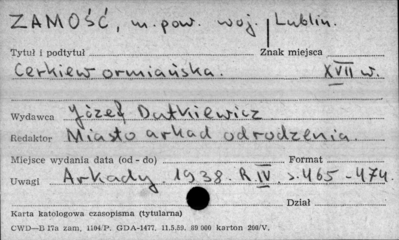 ZAMOŚĆ, m. pow. woj. Lublin.
Tytuł i podtytuł Znak miejsca
Cerkiew ormiańska. XVII w.
Wydawca Józef Dutkiewicz
Redaktor Miasto arkad odrodzenia.
Miejsce wydania data (od - do) Format
Uwagi Arkady. 1938. R IV. s. 465-474.
Dział
Karta katologowa czasopisma (tytularna)
CWD—B 17a zam. 1104/P. GDA-1477. 11.5.59. 89 000 karton 200/V.